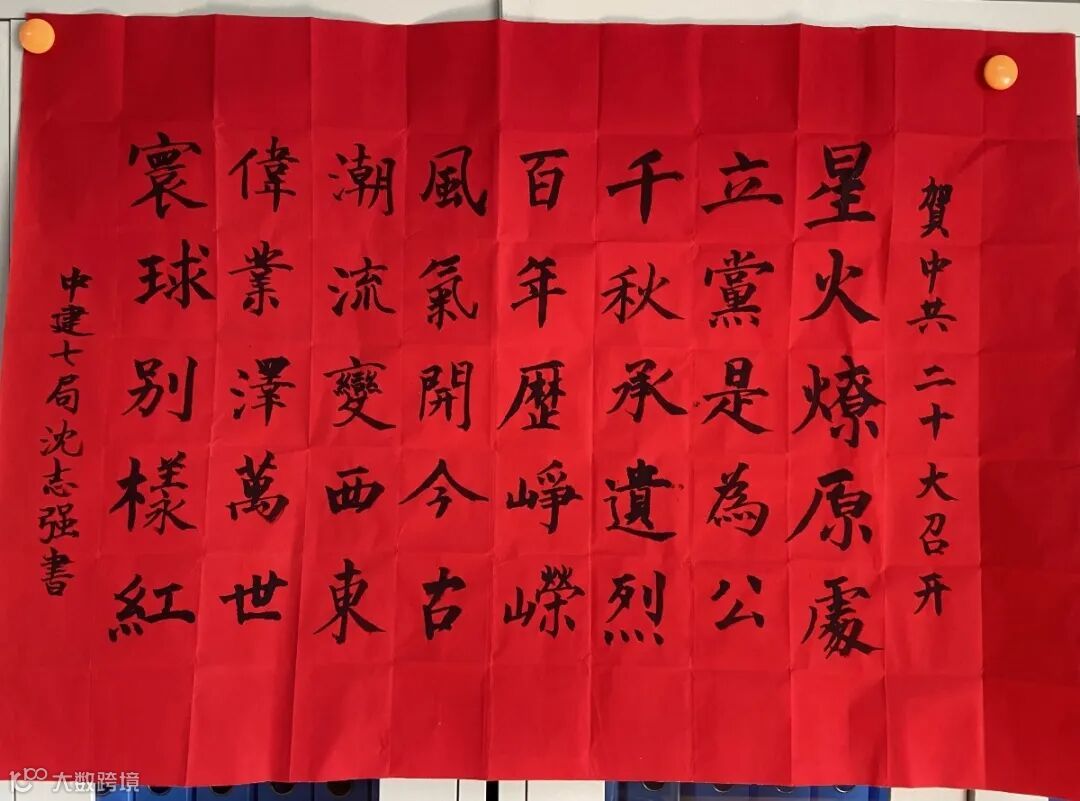 賀中共二十大召开
星火燎原原處
立黨是為公
千秋承遺烈
百年歷崢嶸
風氣開今古
潮流變西東
偉業澤萬世
寰球别樣紅
中建七局沈志强書
大数跨境